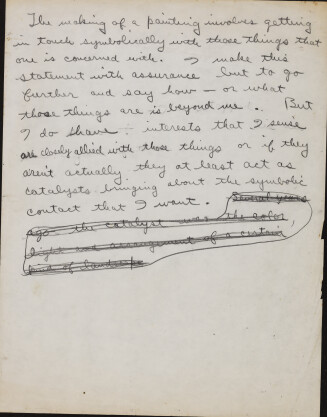 The making of a painting involves getting
in touch symbolically with those things that
one is concerned with. I make this
statement with assurance but to go
further and say how — or what
those things are is beyond me. But
I do have interests that I sense
are closely allied with those things or if they
aren't actually they at least act as
catalysts bringing about the symbolic
contact that I want. Several years
ago the catalyst was the color
light and arrangement of a certain
kind of landscape